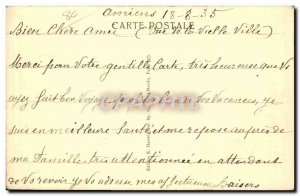 Amiens 18-8-35
CARTE POSTALE
Bien Chère amie (Vue de la Vielle Ville)
Merci pour Votre gentille Carte, très heureuse que V
ayez fait bon Voyage de Vos Vacances, je
suis en meilleure Santé et me repose auprès de
ma famille très attentionnée en attendant
de Vs revoir je Vs adresse mes affectueux Baisers